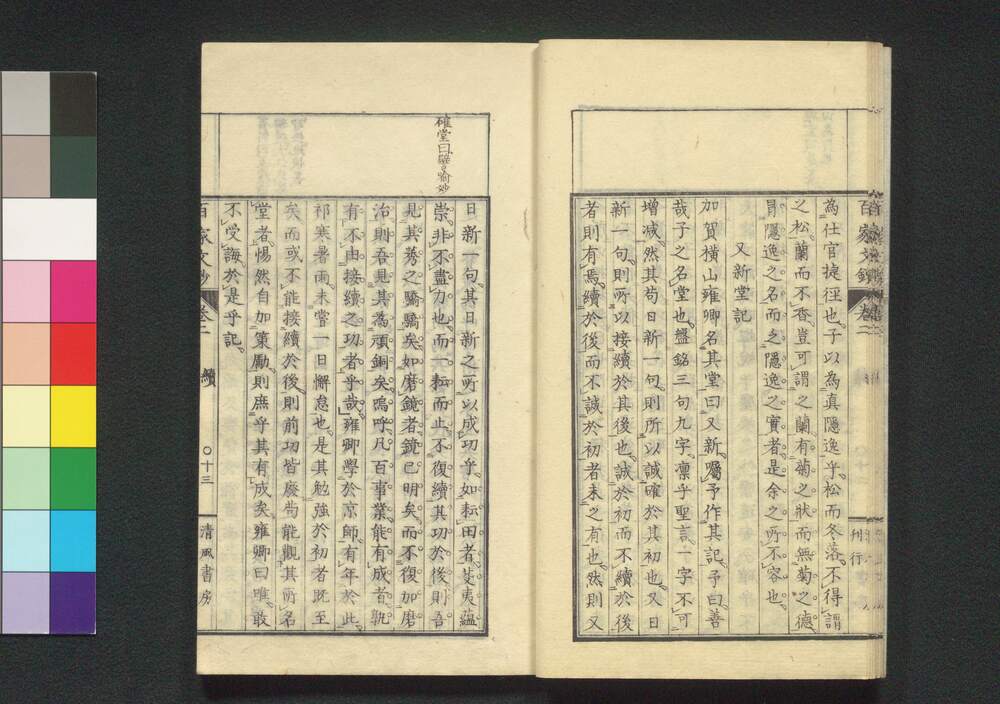 為仕官捷徑也予以為真隱逸乎松而冬落不得謂
之松蘭而不香豈可謂之蘭有菊之狀而無菊之德
冐隱逸之名而乏隱逸之實者是余之所不容也
又新堂記
加賀横山雍卿名其堂曰又新囑予作其記予曰善
哉子之名堂也盤銘三句九字凛乎聖言一字不可
増減然其苟日新一句則所以誠確於其初也又日
新一句則所以接續於其後也誠於初而不續於後
者則有焉續於後而不誠於初者未之有也然則又
百家文鈔
卷二
刊行
日新一句其日新之所以成功乎如耘田者芟夷蘊
崇非不盡力也而一耘而止不復續其功於後則吾
見其莠之驕驕矣如磨鏡者鏡已明矣而不復加磨
治則吾見其為頑銅矣嗚呼凡百事業能有成者孰
有不由接續之功者乎哉雍卿學於京師有年於此
祁寒暑雨未嘗一日懈怠也是其勉強於初者既至
矣而或不能接續於後則前功皆廢苟能觀其所名
堂者惕然自加策勵則庶乎其有成矣雍卿曰唯敢
不受誨於是乎記
確堂曰譬喻妙
百家文鈔
卷二
續
〇十三
清風書房